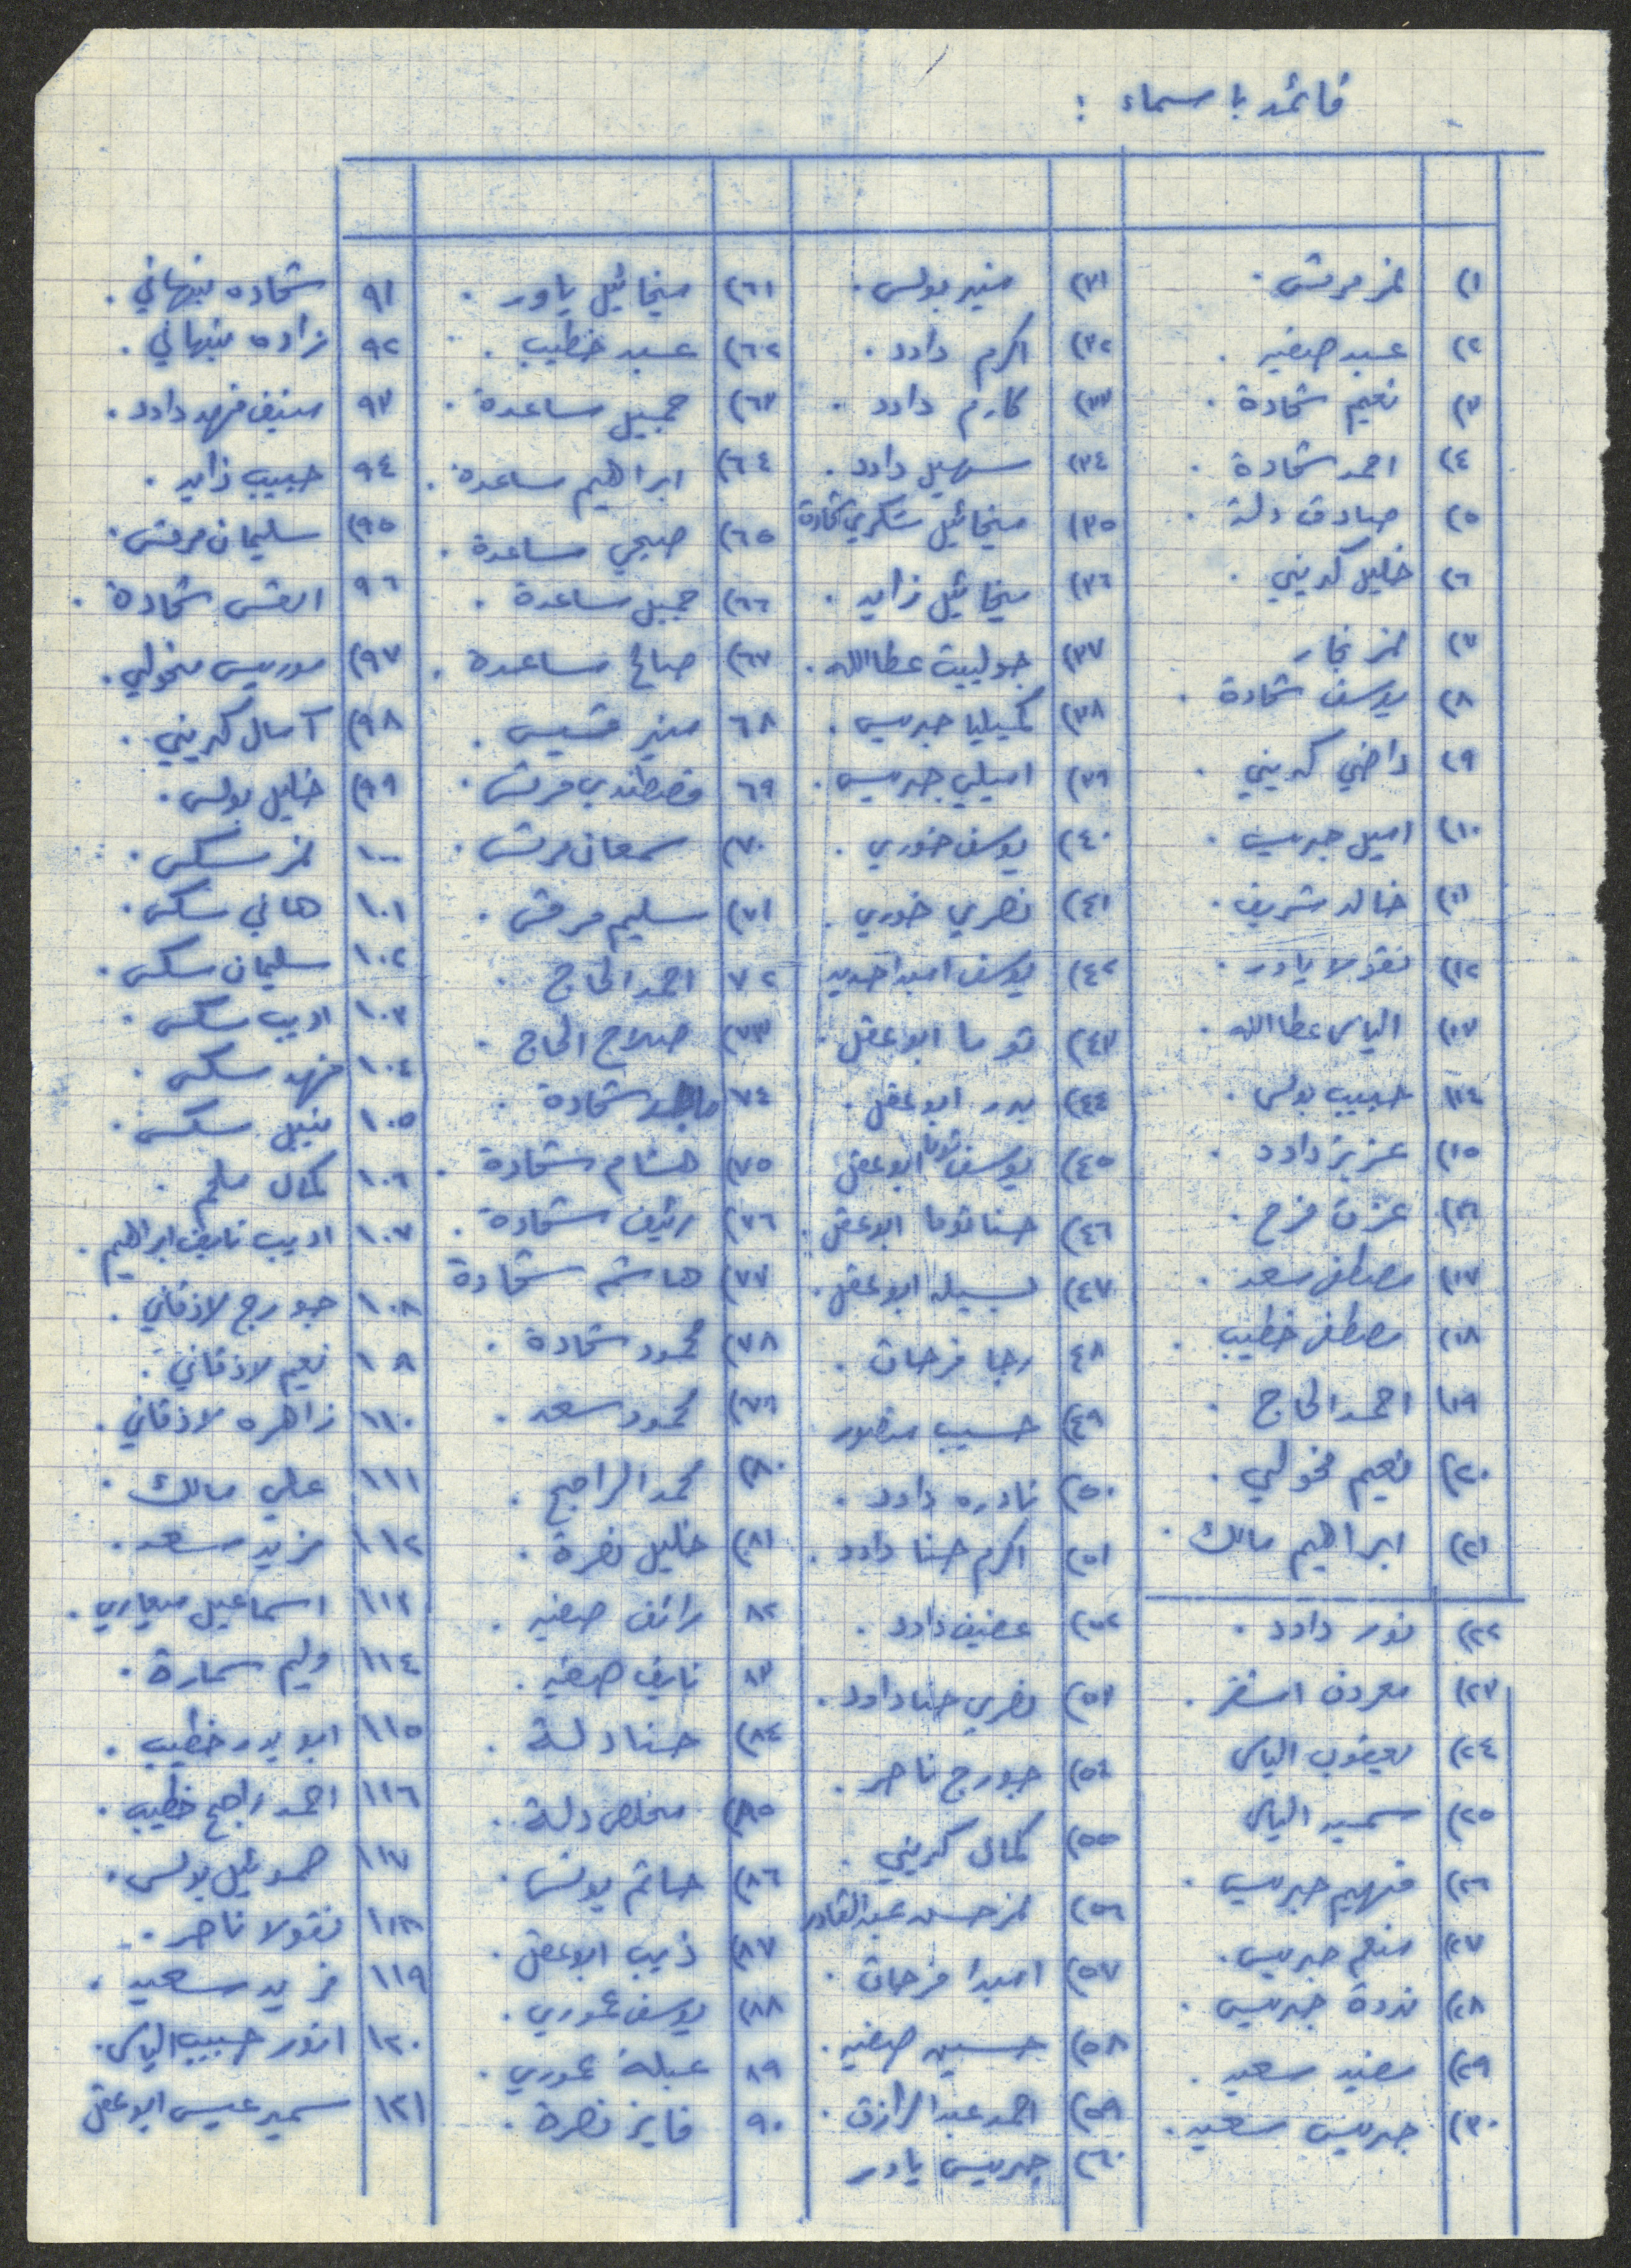 قائمة باسماء :
١) نمر مرقس .
٢) عبد صفيه .
٣) نعيم شحادة .
٤) احمد شحادة .
٥) صادق دلة .
٦) خليل كريني .
٧) نمر نجار
٨) يوسف شحادة .
٩) راضي كريني .
١٠) اميل جبريس .
١١) خالد شريف .
١٢) نقولا ياور .
١٣) الياس عطاالله .
١٤) حبيب بولس .
١٥) عزيز داود .
١٦) عزت فرح .
١٧) مصطفى سعد .
١٨) مصطفى خطيب .
١٩) احمد الحاج .
٢٠) نعيم مخولي .
٢١) ابراهيم مالك .
٢٢) نور داود .
٢٣) معروف اشقر .
٢٤) يعقوب الياس
٢٥) سمير الياس
٢٦) فهيم جبريس .
٢٧) منعم جبريس .
٢٨) ندوة جبريس .
٢٩) مفيد سعيد .
٣٠) جبريس سعيد .
٣١) منير بولس .
٣٢) اكرم داود .
٣٣) كارم داود .
٣٤) سهيل داود .
٣٥) ميخائيل شكري شحادة
٣٦) ميخائيل زايد .
٣٧) جولييت عطاالله .
٣٨) كميليا جبريس .
٣٩) اميلي جبريس .
٤٠) يوسف خوري .
٤١) نصري خوري .
٤٢) يوسف اسبر احديد
٤٣) توما ابو عقل .
٤٤) بدر ابو عقل .
٤٥) يوسف توما ابو عقل
٤٦) حنا توما ابو عقل .
٤٧) نبيله ابو عقل .
٤٨ رجا فرحات .
٤٩) حسيب منصور
٥٠) نادره داود .
٥١) اكرم حنا داود .
٥٢) عفيف داود .
٥٣) نصري حنا داود .
٥٤) جورج ناصر .
٥٥) كمال كريني .
٥٦) نمر حسين عبد القادر
٥٧) اسبر فرحات .
٥٨) حسين صفيه .
٥٩) احمد عبد الرازق .
٦٠) جبريس ياور
٦١) ميخائيل ياور .
٦٢) عبد خطيب .
٦٣) جميل مساعدة .
٦٤) ابراهيم مساعدة .
٦٥) صبحي مساعدة .
٦٦) جميل مساعدة .
٦٧) صالح مساعدة .
٦٨ منير قسيس .
٦٩ قسطندي مرقس .
٧٠) سمعان مرقس .
٧١) سليم مرقس .
٧٢ احمد الحاج .
٧٣) صلاح الحاج .
٧٤ شحادة .
٧٥) هشام شحادة .
٧٦) رئيف شحادة .
٧٧) هاشم شحادة
٧٨) محمود شحادة .
٧٩) محمود سعد .
٨٠) محمد الراجح .
٨١) خليل نصرة .
٨٢ رائف صفيه .
٨٣ نايف صفيه .
٨٤) حنا دلة .
٨٥) مخلص دلة .
٨٦) حاتم يونس .
٨٧) ذيب ابو عقل .
٨٨) يوسف خوري .
٨٩ عبلة خوري .
٩٠ فايز نصرة .
٩١ شحاده نبهاني .
٩٢ زاده نبهاني .
٩٣ منيف فهد داود .
٩٤ حبيب زايد .
٩٥) سليمان مرقس .
٩٦ القس شحادة .
٩٧) موريس مخولي .
٩٨) آمال كريني .
٩٩) خليل بولس .
١٠٠ نمر سكس .
١٠١ هاني سكس .
١٠٢ سليمان سكس .
١٠٣ اديب سكس .
١٠٤ فهد سكس .
١٠٥ نبيل سكس .
١٠٦ كمال ملحم .
١٠٧ اديب نايف ابراهيم .
١٠٨ جورج لاذقاني .
١٠٩ نعيم لاذقاني .
١١٠ زاهره لاذقاني .
١١١ علي مالك .
١١٢ مزيد سعد .
١١٣ اسماعيل معياري .
١١٤ وليم سمارة .
١١٥ ابو بدر خطيب .
١١٦ احمد راجح خطيب .
١١٧ صموئيل بولس .
١١٨ نقولا ناصر .
١١٩ فريد سعيد .
١٢٠ انور حبيب الياس .
١٢١ سمير عيسى ابو عقل